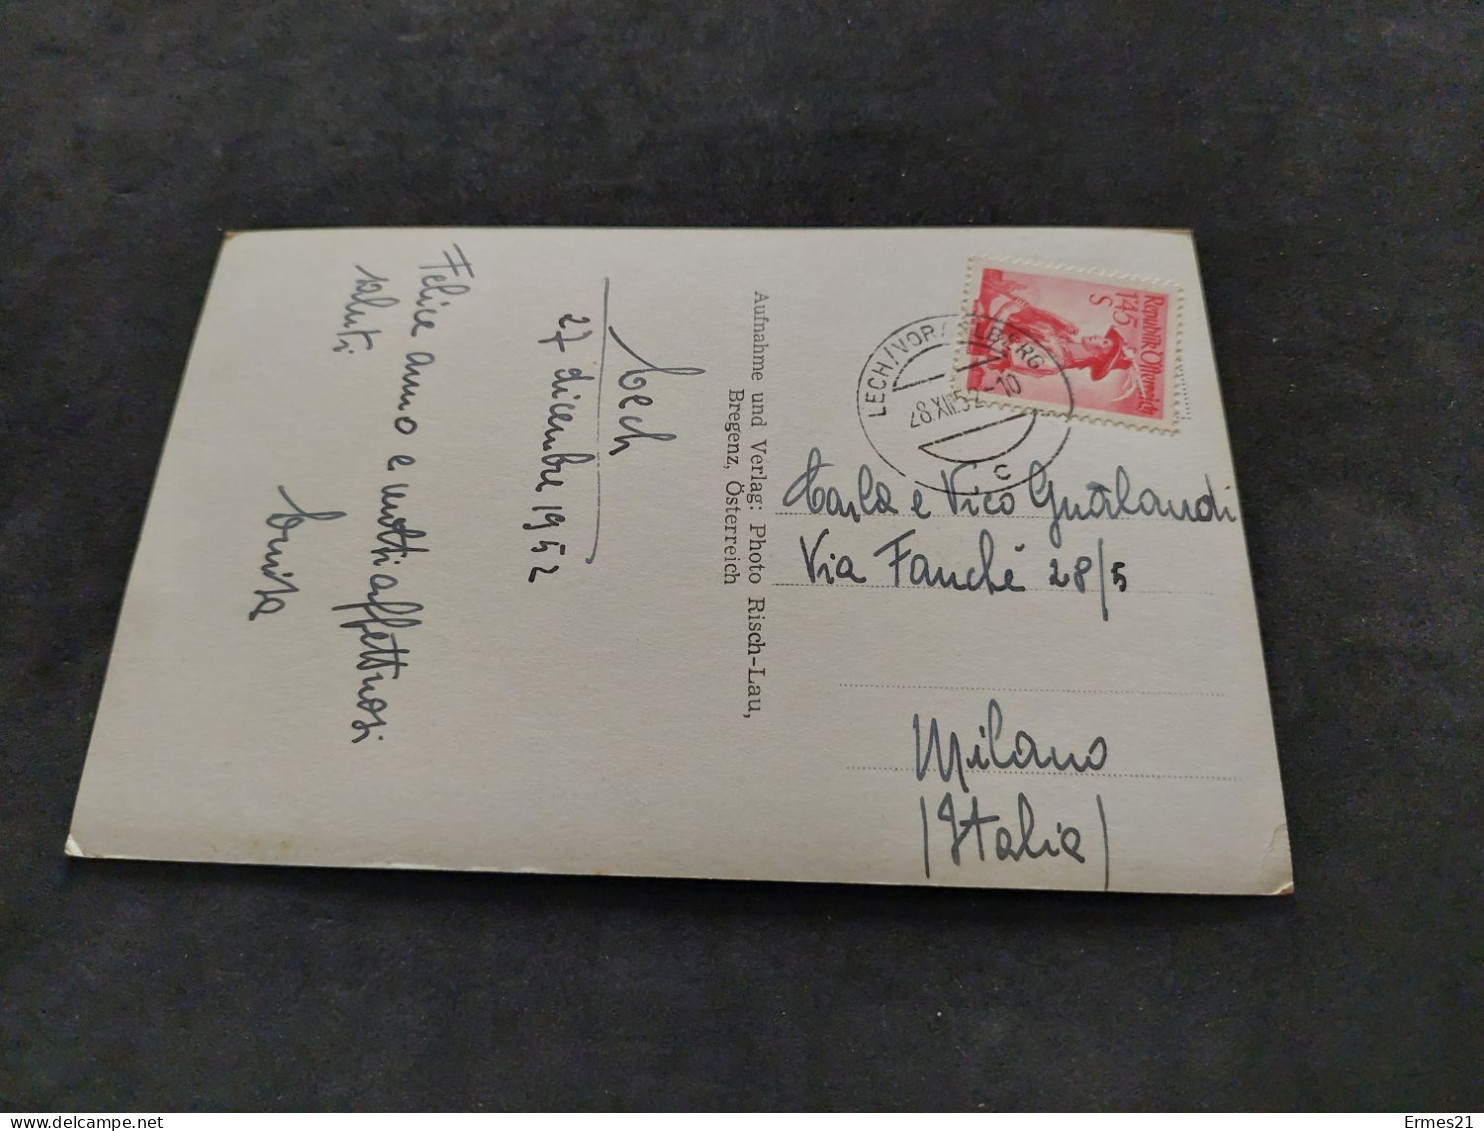 Lech
27 dicembre 1952
Felice anno e molti affettuosi
saluti
Aufnahme und Verlag: Photo Risch-Lau,
Bregenz, Österreich
Republik Österreich
1'45
S
LECH/VORARLBERG
28.XII.52-10
c
Carla e Vico Gualandi
Via Fauché 28/5
Milano
(Italia)
Ermes21